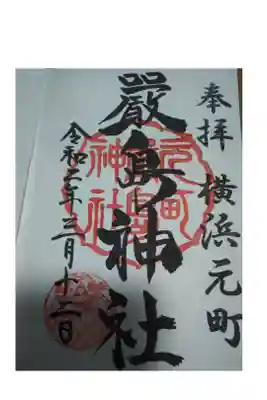 奉拝 横浜元町
嚴島神社
令和二年三月十二日
元町
神社